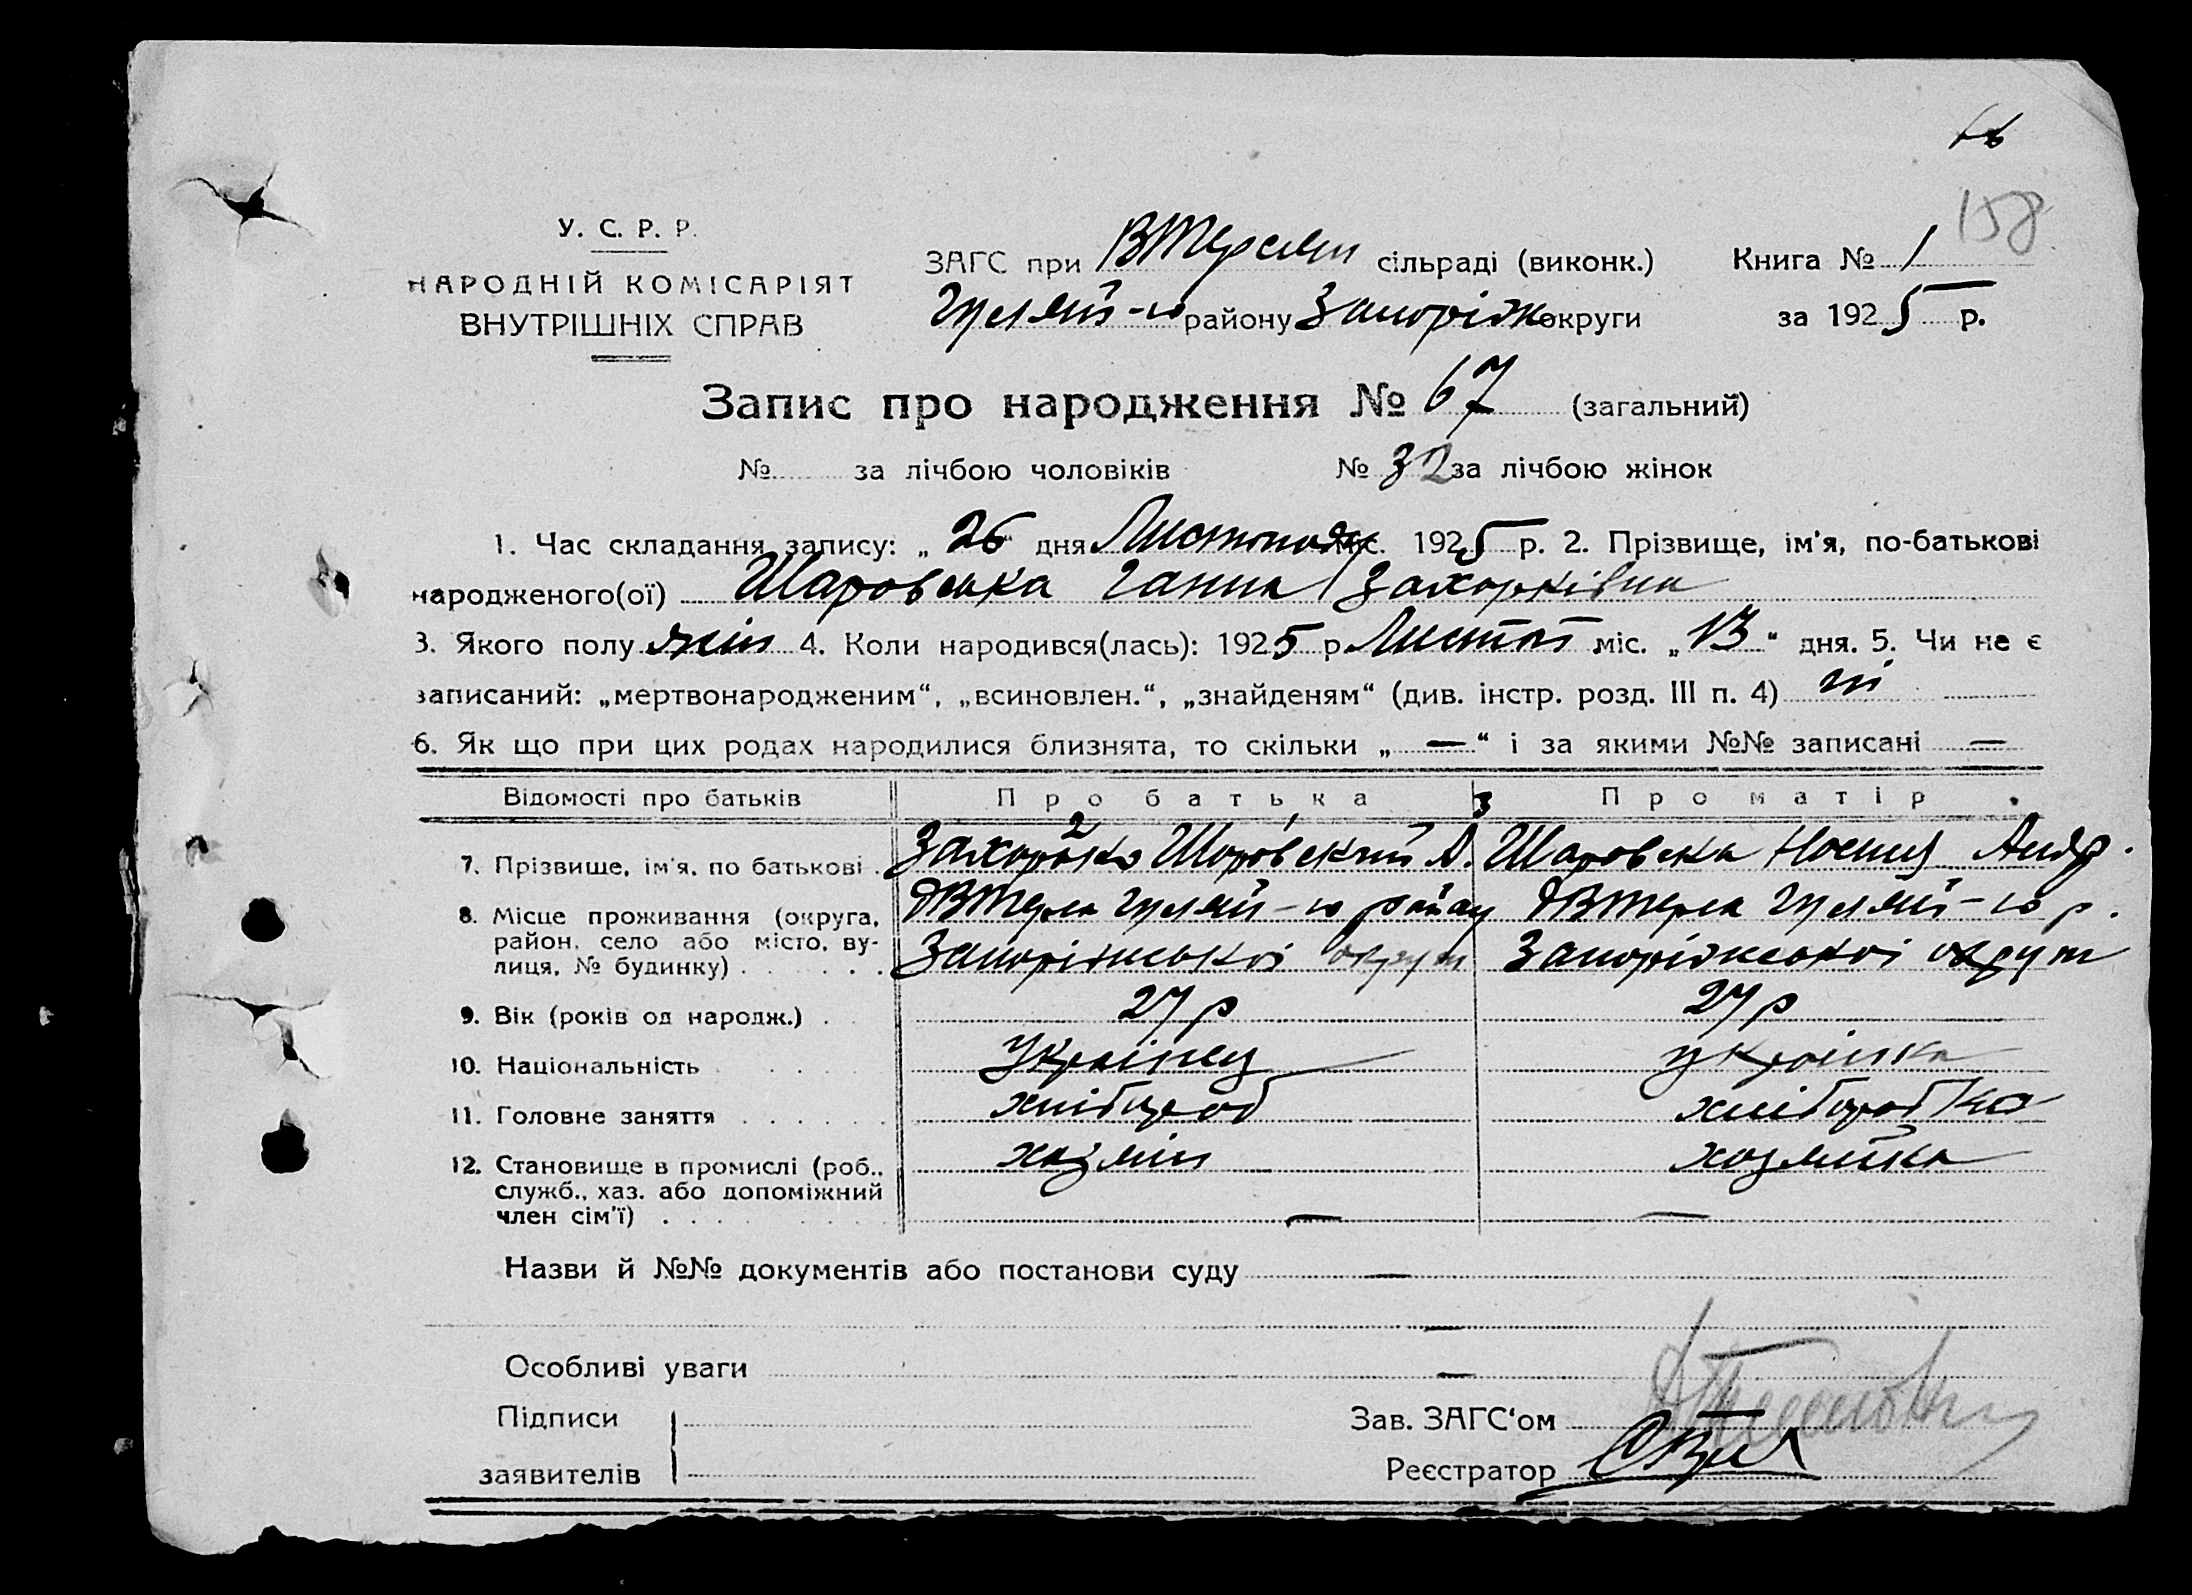 158
У. С. Р. Р.
НАРОДНІЙ КОМІСАРІЯТ
ВНУТРІШНІХ СПРАВ
ЗАГС при ВТерсян сільраді (виконк.) Книга № 1
Гуляй-ю району Запоріж округи за 1925 р.
Запис про народження № 67 (загальний)
№ за лічбою чоловіків № 32 за лічбою жінок
1. Час складання запису: „26“ дня Листопаду міс. 1925 р. 2. Прізвище, ім'я, по-батькові
народженого(ої) Шаровська Ганна Захарківна
3. Якого полу жін 4. Коли народився(лась): 1925 р. Листоп міс. „13“ дня. 5. Чи не є
записаний: „мертвонародженим“, „всиновлен.“, „знайденям“ (див. інстр. розд. III п. 4) ні
6. Як що при цих родах народилися близнята, то скільки „—“ і за якими №№ записані —
Відомості про батьків Про батька Про матір
7. Прізвище, ім'я, по батькові Шаровський Шаровська Андр.
8. Місце проживання (округа, ВТерса Гуляй-ю району ВТерса Гуляй-ю р.
район, село або місто, ву- Запоріжської округи Запоріжської округи
лиця, № будинку)
9. Вік (років од народж.) 27 р 27 р
10. Національність Українец українка
11. Головне заняття хлібороб хліборобка
12. Становище в промислі (роб., хазяїн хозяйка
служб., хаз. або допоміжний
член сім'ї) — —
Назви й №№ документів або постанови суду —
—
Особливі уваги —
Підписи Зав. ЗАГС‘ом
заявителів Реєстратор